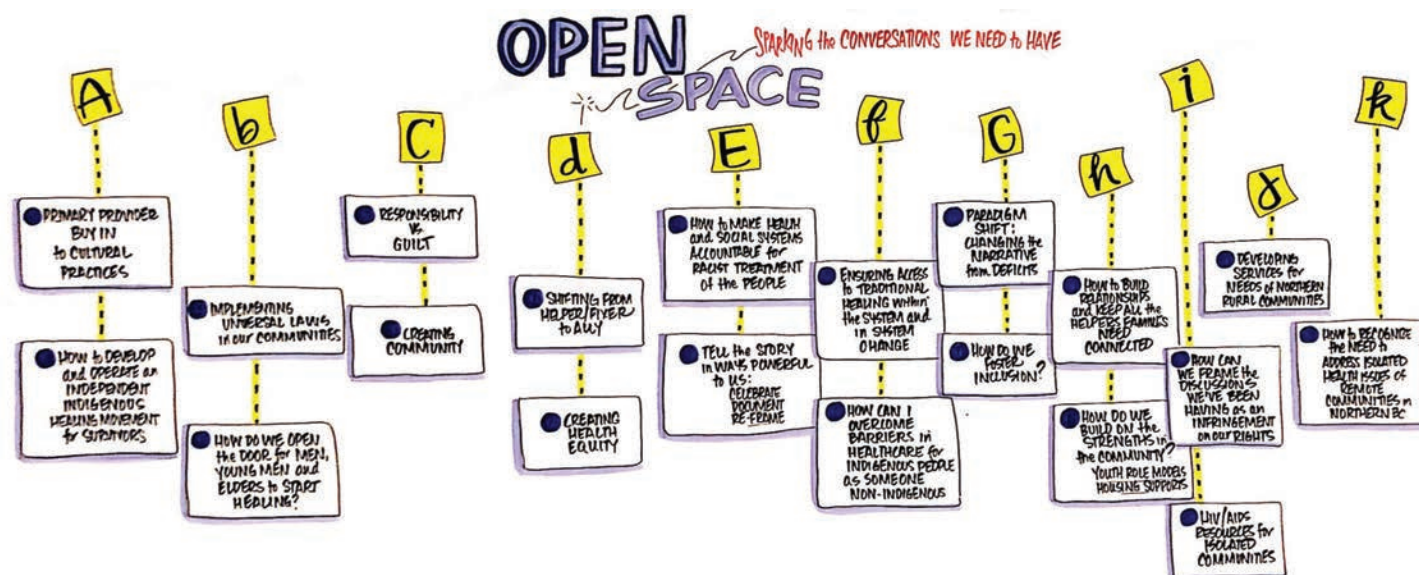 OPEN
SPACE
SPARKING the CONVERSATIONS WE NEED to HAVE
A
PRIMARY PROVIDER
BUY IN
to CULTURAL
PRACTICES
HOW to DEVELOP
and OPERATE an
INDEPENDENT
INDIGENOUS
HEALING MOVEMENT
for SURVIVORS
b
IMPLEMENTING
UNIVERSAL LAWS
in OUR COMMUNITIES
HOW DO WE OPEN
the DOOR for MEN,
YOUNG MEN and
ELDERS to START
HEALING?
C
RESPONSIBILITY
VS.
GUILT
CREATING
COMMUNITY
d
SHIFTING FROM
HELPER/FIXER
to ALLY
CREATING
HEALTH
EQUITY
E
HOW to MAKE HEALTH
and SOCIAL SYSTEMS
ACCOUNTABLE for
RACIST TREATMENT
of the PEOPLE
TELL the STORY
in WAYS POWERFUL
to US:
CELEBRATE
DOCUMENT
RE-FRAME
f
ENSURING ACCESS
to TRADITIONAL
HEALING within
the SYSTEM and
in SYSTEM
CHANGE
HOW CAN I
OVERCOME
BARRIERS in
HEALTHCARE for
INDIGENOUS PEOPLE
as SOMEONE
NON-INDIGENOUS
G
PARADIGM
SHIFT:
CHANGING the
NARRATIVE
from DEFICITS
HOW DO WE
FOSTER
INCLUSION?
h
HOW to BUILD
RELATIONSHIPS
and KEEP ALL the
HELPERS FAMILIES
NEED
CONNECTED
HOW DO WE
BUILD ON the
STRENGTHS in
the COMMUNITY?
YOUTH ROLE MODELS
HOUSING SUPPORTS
i
HOW CAN
WE FRAME the
DISCUSSIONS
WE'VE BEEN
HAVING as an
INFRINGEMENT
on OUR RIGHTS
HIV/AIDS
RESOURCES for
ISOLATED
COMMUNITIES
j
DEVELOPING
SERVICES for
NEEDS OF NORTHERN
RURAL COMMUNITIES
k
HOW to RECOGNIZE
the NEED to
ADDRESS ISOLATED
HEALTH ISSUES of
REMOTE
COMMUNITIES in
NORTHERN BC